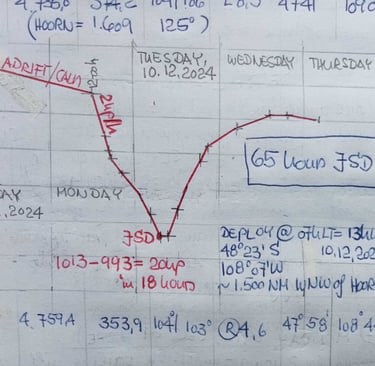 4.735,0 374,2 104/106 4741
(HOORN = 1.609 125°)
ADRIFT/CALM
TUESDAY,
10.12.2024
WEDNESDAY
THURSDAY
65 hour JSD
MONDAY
.2024
JSD
1013-993= 20up
in 18 hour
DEPLOY @ 07HLT=
48°23' S
10.12.202
108°07'W
~ 1.500 NM WNW of HOOR
4.759,4 353,9 104/ 103° Ⓡ4,6 47°58' 108°4